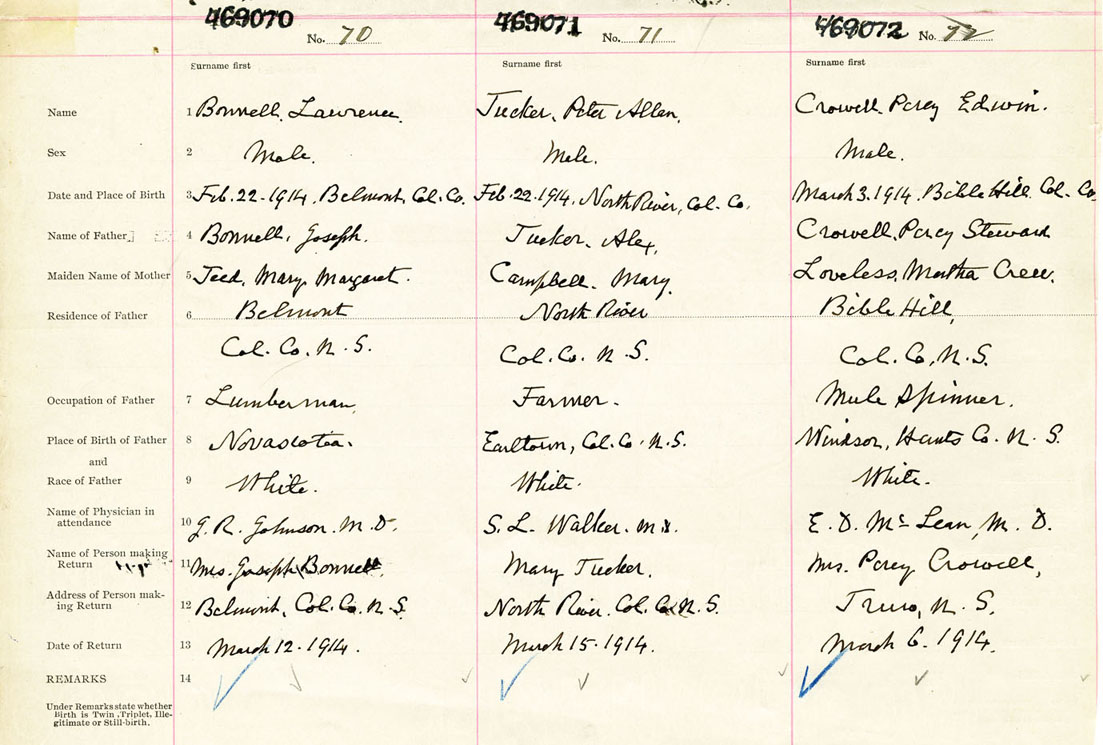 469070 No. 70 469071 No. 71 469072 No. 72
Surname first Surname first Surname first
Name 1 Bonnell, Lawrence. Tucker, Peter Allan. Crowell, Percy Edwin.
Sex 2 Male. Male. Male.
Date and Place of Birth 3 Feb. 22-1914, Belmont, Col. Co. Feb. 22-1914, North River, Col. Co. March 3. 1914, Bible Hill Col. Co.
Name of Father 4 Bonnell, Joseph. Tucker, Alex, Crowell, Percy Steward
Maiden Name of Mother 5 Teed, Mary Margaret. Campbell, Mary. Loveless, Martha
Residence of Father 6 Belmont North River Bible Hill,
Col. Co. N. S. Col. Co. N. S. Col. Co, N. S.
Occupation of Father 7 Lumberman, Farmer. Mule Spinner.
Place of Birth of Father 8 Novascotea. Earltown, Col. Co. N. S. Windsor, Hants Co. N. S.
and
Race of Father 9 White. White. White.
Name of Physician in
attendance 10 J. R. Johnson. M. D. S. L. Walker. M.D. E. D. McLean, M. D.
Name of Person making
Return 11 Mrs. Joseph Bonnell. Mary Tucker. Mrs. Percy Crowell,
Address of Person mak-
ing Return 12 Belmont, Col. Co. N. S. North River. Col. Co. N. S. Truro, N. S.
Date of Return 13 March 12. 1914. March 15. 1914. March 6. 1914.
REMARKS 14
Under Remarks state whether
Birth is Twin, Triplet, Ille-
gitimate or Still-birth.